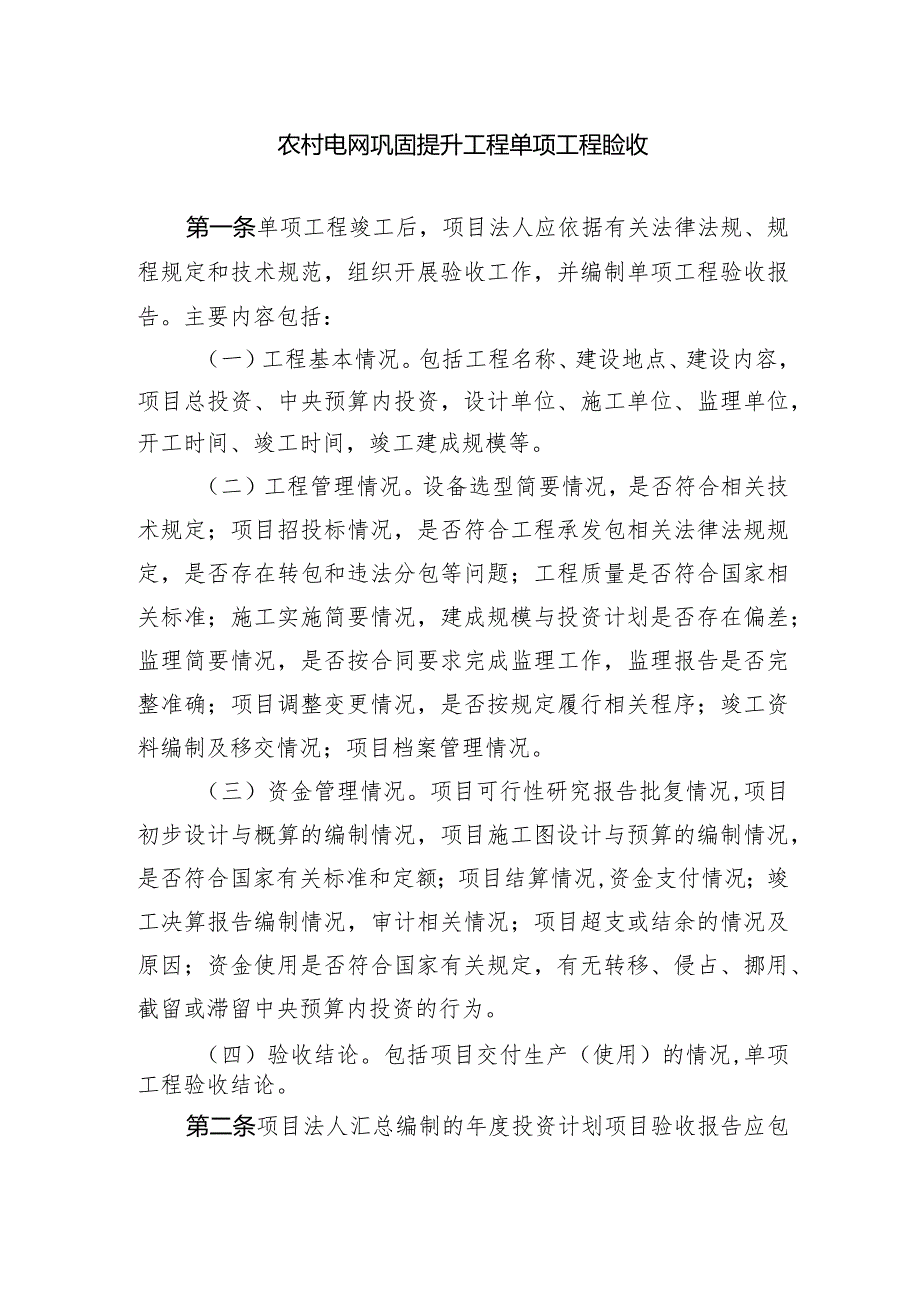 农村电网巩固提升工程单项工程睑收
第一条单项工程竣工后，项目法人应依据有关法律法规、规
程规定和技术规范，组织开展验收工作，并编制单项工程验收报
告。主要内容包括：
（一）工程基本情况。包括工程名称、建设地点、建设内容，
项目总投资、中央预算内投资，设计单位、施工单位、监理单位，
开工时间、竣工时间，竣工建成规模等。
（二）工程管理情况。设备选型简要情况，是否符合相关技
术规定；项目招投标情况，是否符合工程承发包相关法律法规规
定，是否存在转包和违法分包等问题；工程质量是否符合国家相
关标准；施工实施简要情况，建成规模与投资计划是否存在偏差；
监理简要情况，是否按合同要求完成监理工作，监理报告是否完
整准确；项目调整变更情况，是否按规定履行相关程序；竣工资
料编制及移交情况；项目档案管理情况。
（三）资金管理情况。项目可行性研究报告批复情况,项目
初步设计与概算的编制情况，项目施工图设计与预算的编制情况，
是否符合国家有关标准和定额；项目结算情况,资金支付情况；竣
工决算报告编制情况，审计相关情况；项目超支或结余的情况及
原因；资金使用是否符合国家有关规定，有无转移、侵占、挪用、
截留或滞留中央预算内投资的行为。
（四）验收结论。包括项目交付生产（使用）的情况,单项
工程验收结论。
第二条项目法人汇总编制的年度投资计划项目验收报告应包